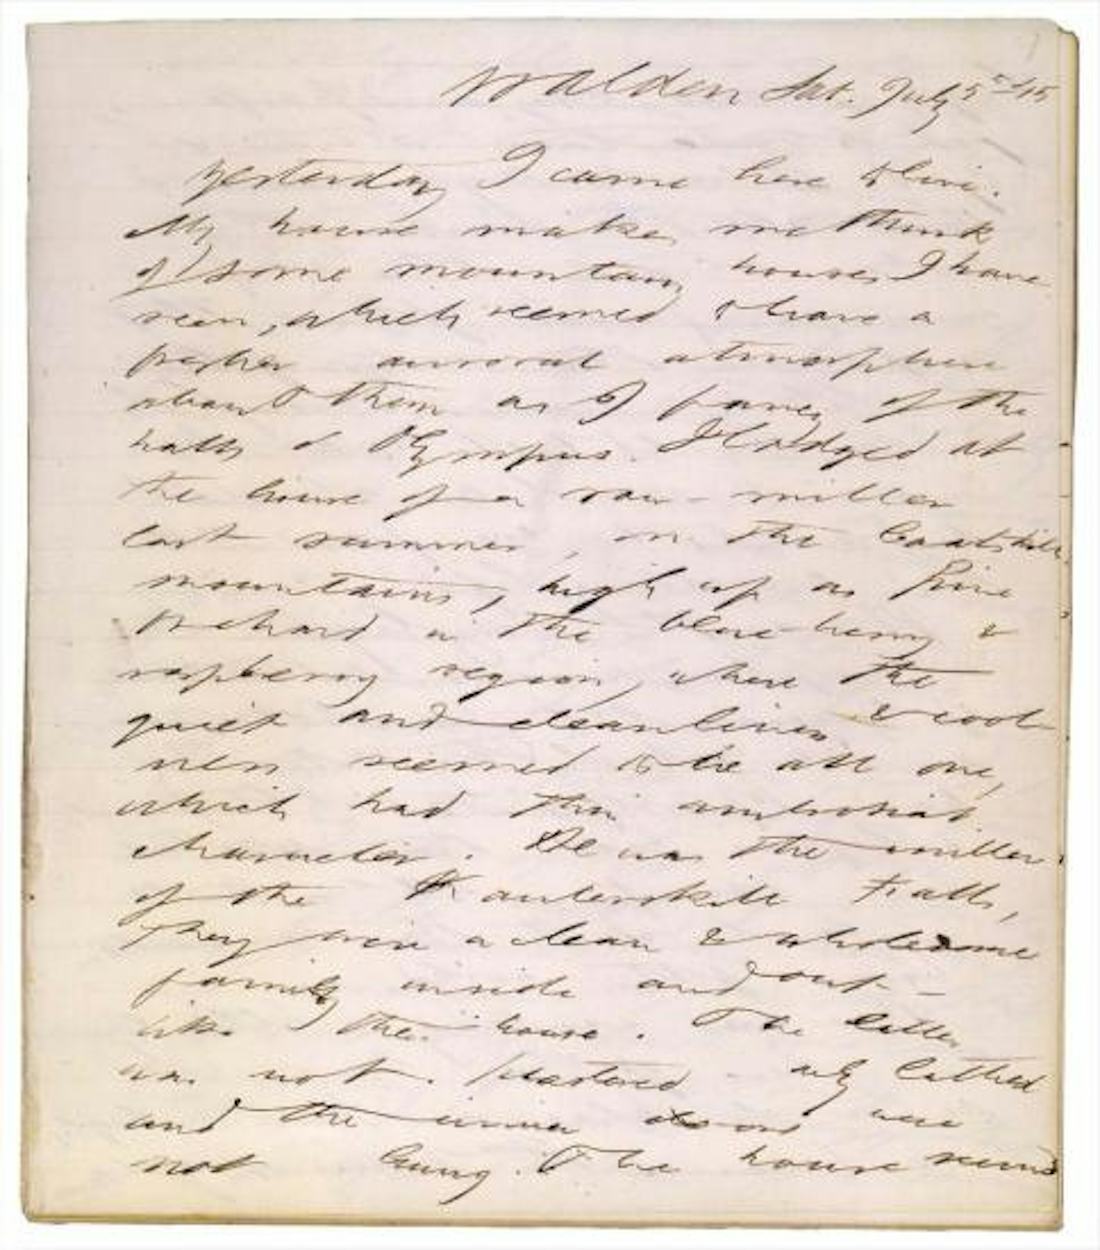 Walden Sat. July 5th 45
Yesterday I came here to live.
My house makes me think
of some mountain houses I have
seen, which seemed to have a
fresher auroral atmosphere
about them as I fancy of the
halls of Olympus. I lodged at
the house of a saw-miller
last summer, on the Caatskill
mountains, high up as Pine
Orchard in the blue-berry &
raspberry region, where the
quiet and cleanliness & cool
ness seemed to be all one,
which had this ambrosial
character. He was the miller
of the Kauterskill Falls,
They were a clean & wholesome
family inside and out–
like their house. The latter
was not plastered – only lathed
and the inner doors were
not hung. The house seemed